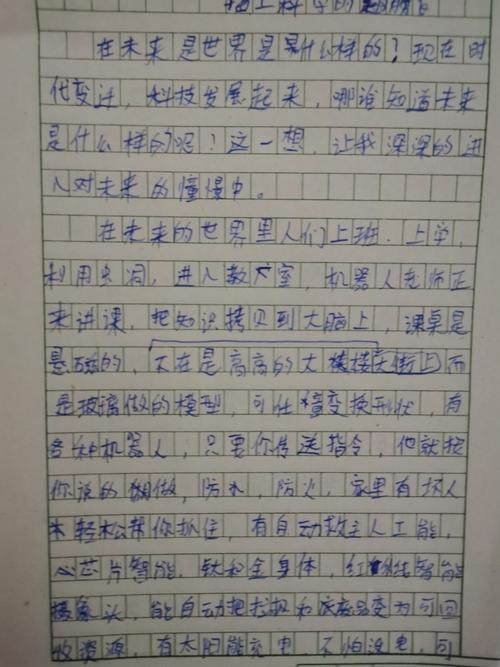 插上科学的翅膀飞
在未来是世界是是什么样的？现在时
代变迁，科技发展起来，哪谁知道未来
是什么样的呢？这一想，让我深深的进
入对未来的憧憬中。
在未来的世界里人们上班、上学，
利用虫洞，进入教室，机器人老师正
来讲课，把知识拷贝到大脑上，课桌是
悬磁的，不在是高高的大楼挂在街上而
是玻璃做的模型，可任情变换形状，有
各种机器人，只要你传送指令，他就按
你说的做，防水，防火，家里有坏人
轻松帮你抓住，有自动救主人工能，
心芯片智能，钛和金身体，红外线智能
摄象头，能自动把垃圾和废品变为可回
收资源，有太阳能充电，不怕没电，可